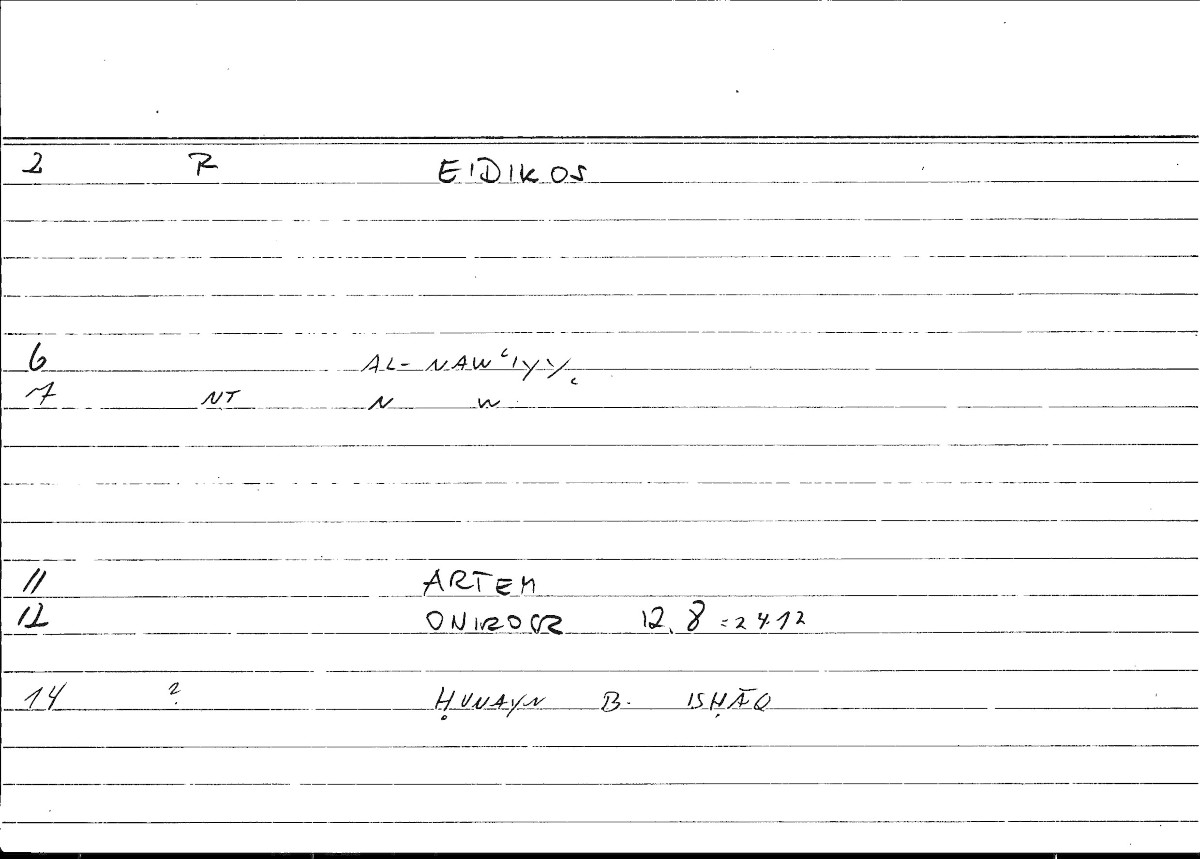 2 R EIDIKOS
6 AL- NAWʿIYY
7 NT N W
11 ARTEM
12 ONIROCR 12.8 = 2 4.12
14 ? ḤUNAYN B. ISḤĀQ